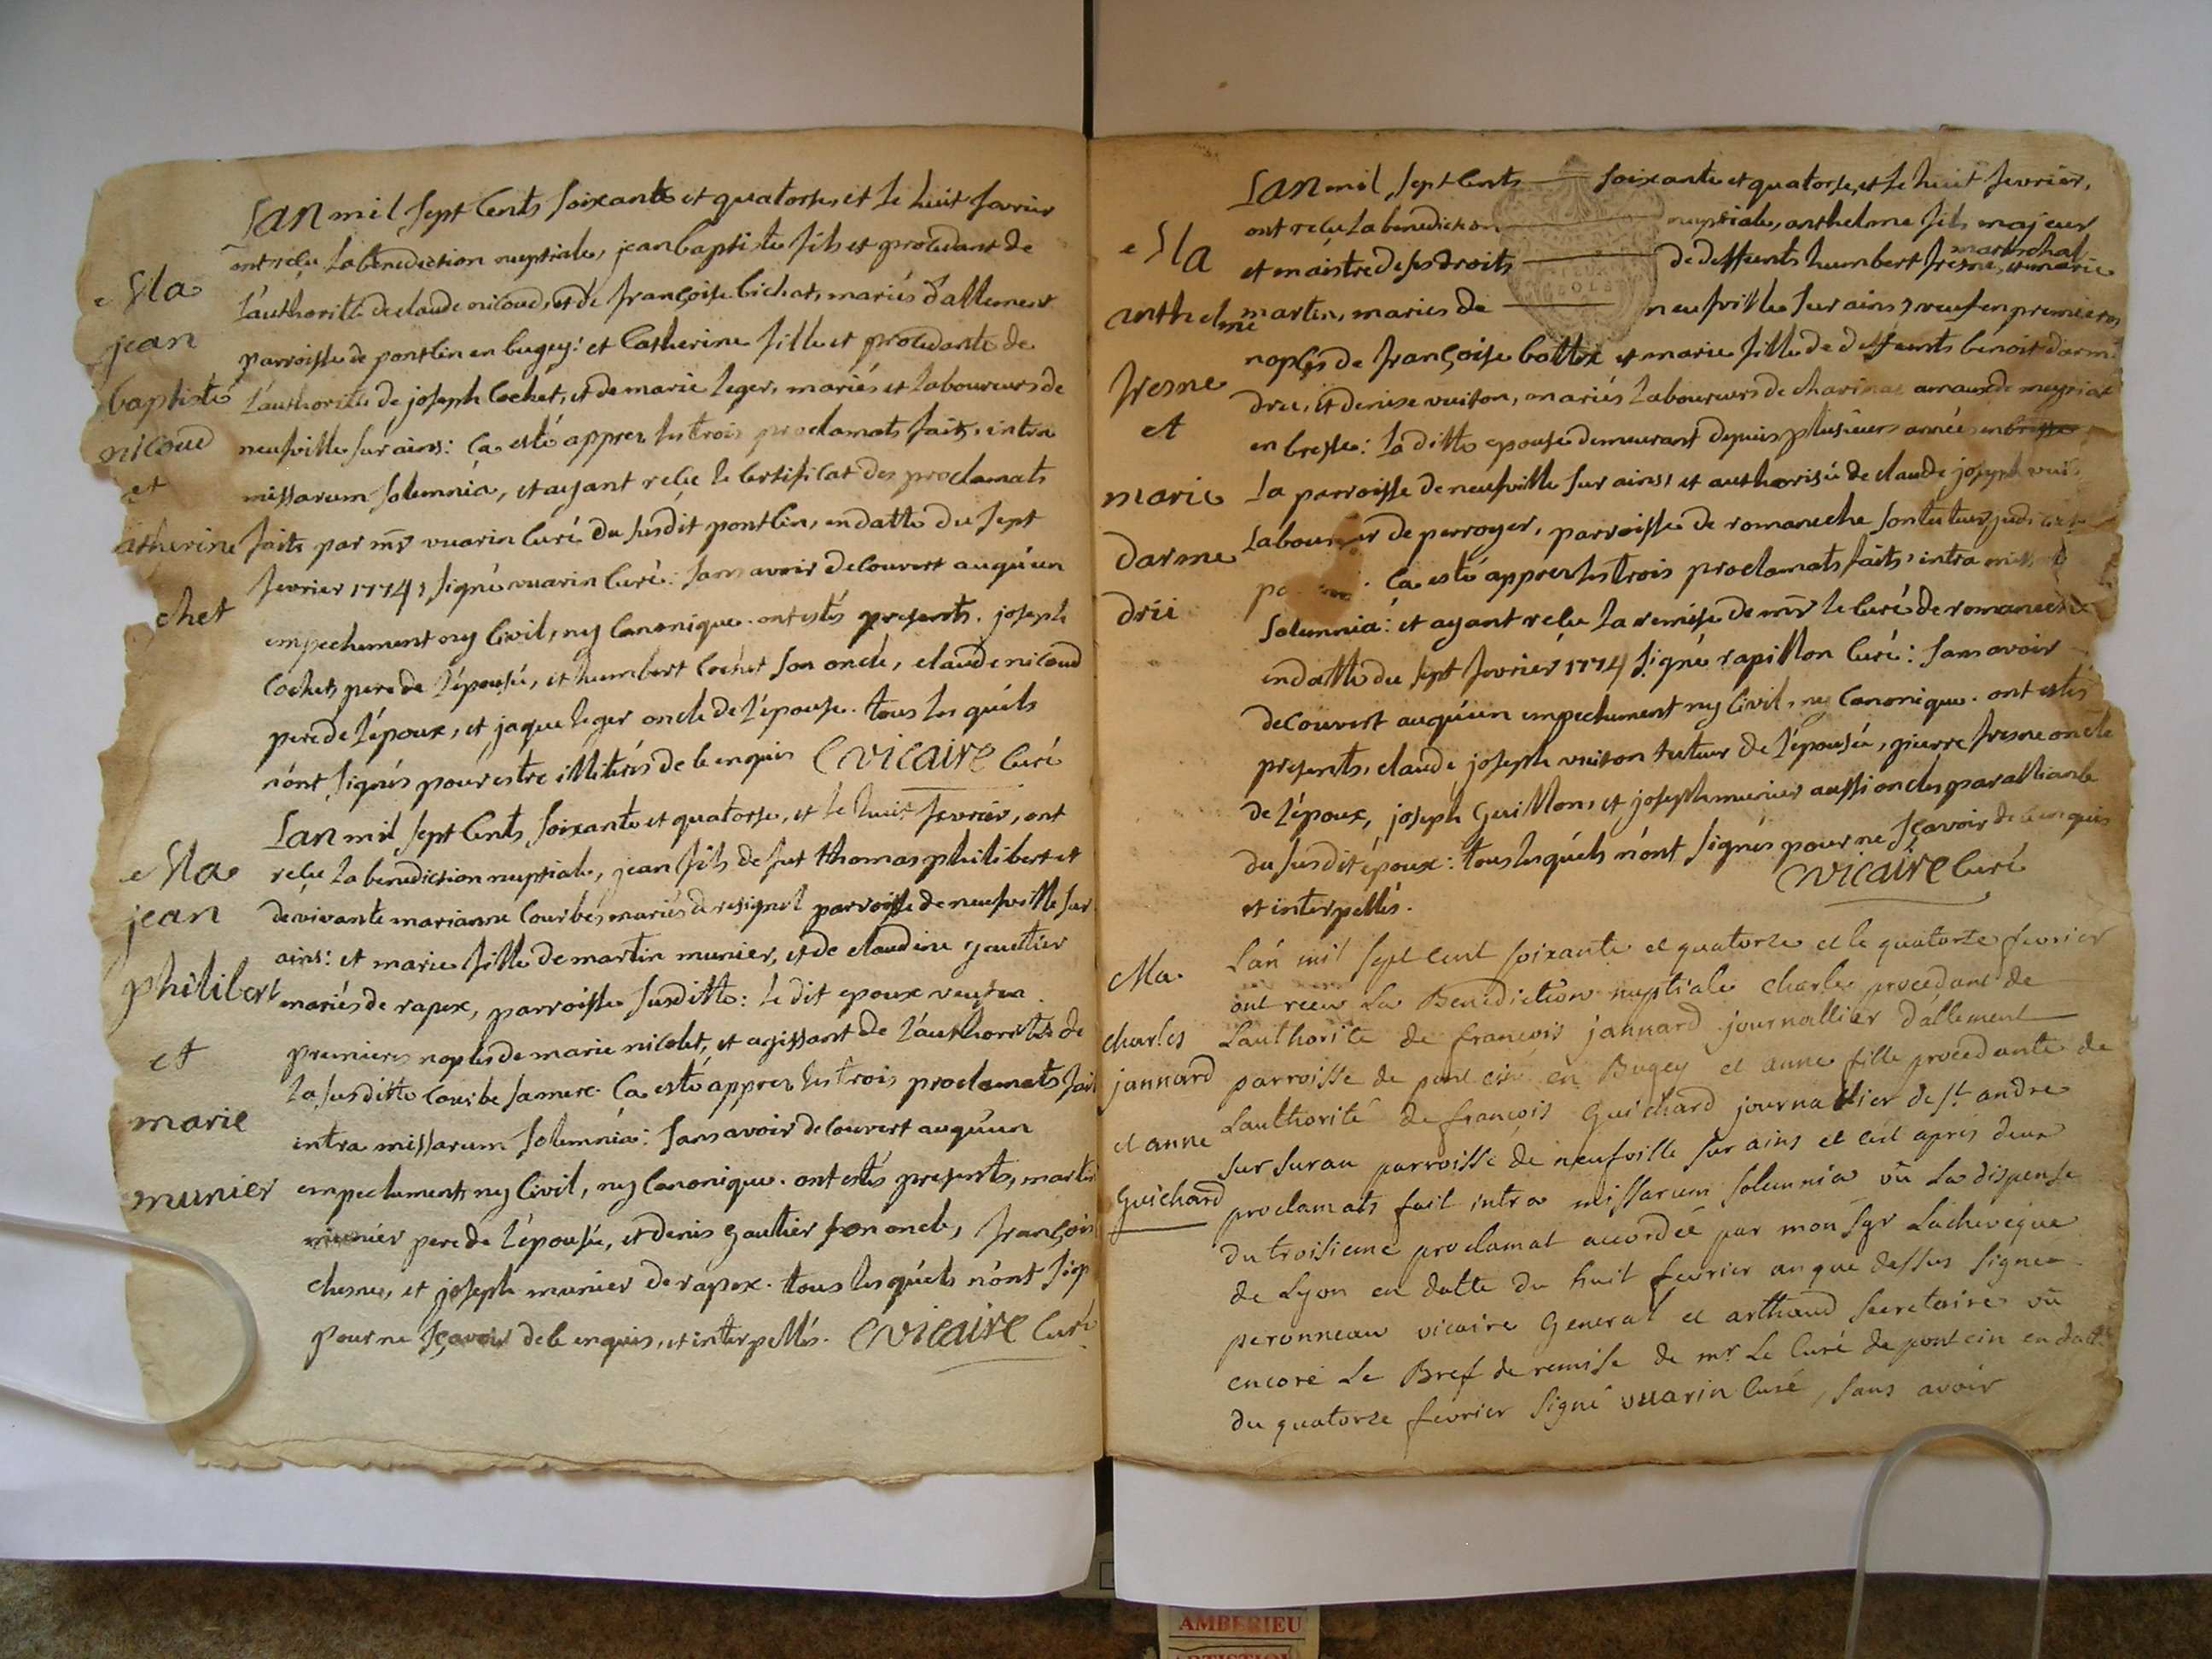 Ma
jean
baptiste
nicoud
et
atherine
chet
Lan mil sept Cents soixante et quatorse, et le huit fevrier
ont reçu la benediction nuptiale, jean baptiste fils et procedant de
l'authorité de claude nicoud, et de françoise bichat, mariés d'allement
parroisse de pontlin en bugey: et Catherine fille et procedante de
l'authorité de joseph Cochet, et de marie leger, mariés et laboureurs de
neufville sur ains: Ca esté appres les trois proclamats faits, intra
missarum solemnia, et ayant reçu le Certificat des proclamats
faits par mr vuarin Curé du susdit pontlin, en datte du sept
fevrier 1774, signé vuarin Curé: sans avoir decouvert auqu'un
empechement ny Civil, ny Canonique. ont estés presents. joseph
Cochet, pere de l'épousée, et humbert Cochet son oncle, claude nicoud
pere de l'époux, et jaque leger oncle de l'épouse. tous lesquéls
n'ont signés pour estre illiterés de ce enquis Cvicaire Curé
Ma
jean
philibert
et
marie
munier
Lan mil sept Cents soixante et quatorse, et le huit fevrier, ont
reçu la benediction nuptiale, jean fils de fut thomas philibert et
de vivante marianne Courbe, mariés de resignel parroisse de neufville sur
ains: et marie fille de martin munier, et de claudine gautier
mariés de rapex, parroisse susditte: le dit epoux veuf en
premieres noples de marie nicolet, et agissant de l'authorité de
la susditte Courbe sa mere. Ca esté appres les trois proclamats fait
intra missarum solemnia: sans avoir decouvert auqu'un
empechement ny Civil, ny Canonique. ont estés presents, martin
munier pere de l'épousée, et denis gautier son oncle, françois
chesne, et joseph munier de rapex. tous lesquéls n'ont sign
pour ne sçavoir de ce enquis, et interpellés. Cvicaire Curé
Ma
anthelme
fresne
et
marie
darme
drii
Lan mil sept Cents soixante et quatorse, et le huit fevrier,
ont reçu la benediction nuptiale, anthelme fils majeur
et maistre de ses droits de deffunts humbert fresne, marechal et marie
martin, mariés de neufville sur ains, veuf en premieres
noples de françoise ballox et marie fille de deffunts benoit darme
drii, et denise vuiton, mariés laboureurs de charinas amaux de meyriat
en bresse: la ditte epouse demeurant depuis plusieurs années en bresse
la parroisse de neufville sur ains, et authorisée de claude joseph vuit
laboureur de perroyer, parroisse de romaneche son tuteur
Ca esté appres les trois proclamats faits, intra miss
solemnia: et ayant reçu la remise de mr le Curé de romaneche
en datte du sept fevrier 1774 signé rapillon Curé: sans avoir
decouvert auqu'un empechement ny Civil, ny Canonique. ont estés
presents, claude joseph vuiton tuteur de l'épousée, pierre fresne oncle
de l'époux, joseph guillon, et joseph munier aussi oncles par alliance
du susdit époux: tous lesquéls n'ont signés pour ne sçavoir de ce enquis
et interpellés.
Cvicaire Curé
Ma.
charles
jannard
et anne
Guichard
L'an mil sept cent soixante et quatorze et le quatorze fevrier
ont recu La Benediction nuptiale charles procedant de
Lauthorité de françois jannard journallier d'allement
parroisse de pont cin en Bugey et anne fille procedante de
Lauthorité de françois Guichard journallier de st andre
sur suran parroisse de neufville sur ains et c'est apres deux
proclamats fait intra missarum solemnia vû La dispense
du troisieme proclamat accordée par mon sgr Lacheveque
de Lyon en datte du huit fevrier an que dessus signee
peronneau vicaire General et arthaud secretaire vû
encore Le Bref de remise de mr Le Curé de pont cin en datt
du quatorze fevrier signé vuarin Curé, sans avoir
AMBERIEU